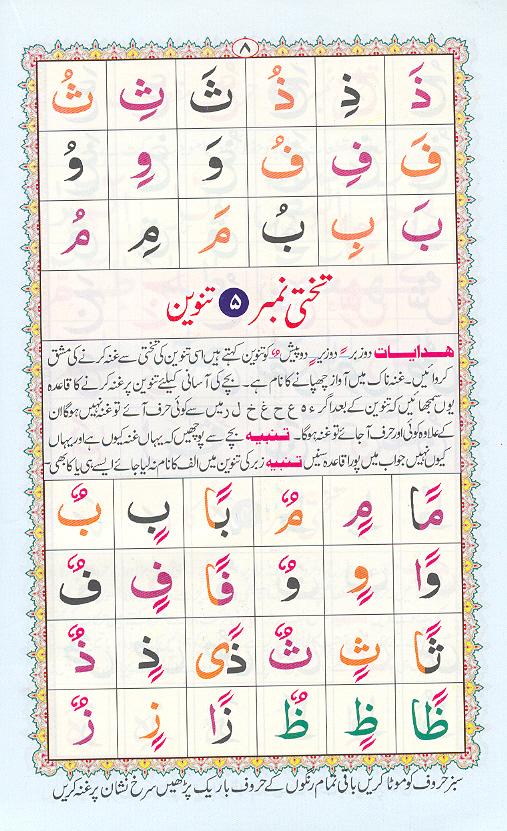 ۸
ذَ ذِ ذُ ثَ ثِ ثُ
فَ فِ فُ وَ وِ وُ
بَ بِ بُ مَ مِ مُ
تختی نمبر ۵ تنوین
ھدایات دو زبر ـً دو زیر ـٍ دو پیش ـٌ کو تنوین کہتے ہیں اسی تنوین کی تختی سے غنہ کرنے کی مشق
کروائیں۔ غنہ ناک میں آواز چھپانے کا نام ہے۔ بچے کی آسانی کیلئے تنوین پر غنہ کرنے کا قاعدہ
یوں سمجھائیں کہ تنوین کے بعد اگر ء ہ ع ح غ خ ل ر میں سے کوئی حرف آئے تو غنہ نہیں ہوگا ان
کے علاوہ کوئی اور حرف آجائے تو غنہ ہوگا۔ تنبیہ بچے سے پوچھیں کہ یہاں غنہ کیوں ہے اور یہاں
کیوں نہیں جواب میں پورا قاعدہ سنیں تنبیہ زبر کی تنوین میں الف کا نام نہ لیا جائے ایسے ہی یا کا بھی
مًا مٍ مٌ بًا بٍ بٌ
وًا وٍ وٌ فًا فٍ فٌ
ثًا ثٍ ثٌ ذًی ذٍ ذٌ
ظًا ظٍ ظٌ زًا زٍ زٌ
سبز حروف کو موٹا کریں باقی تمام رنگوں کے حروف باریک پڑھیں سرخ نشان پر غنہ کریں